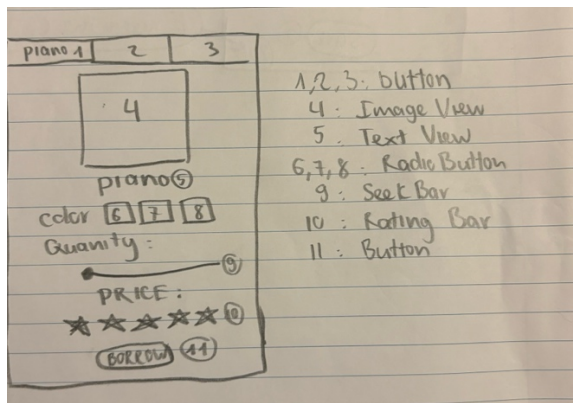 piano 1 2 3
4
piano 5
color 6 7 8
Quanity:
9
PRICE:
10
BORROW 11
1,2,3: button
4: Image View
5. Text View
6,7,8: RadioButton
9: SeekBar
10: Rating Bar
11: Button